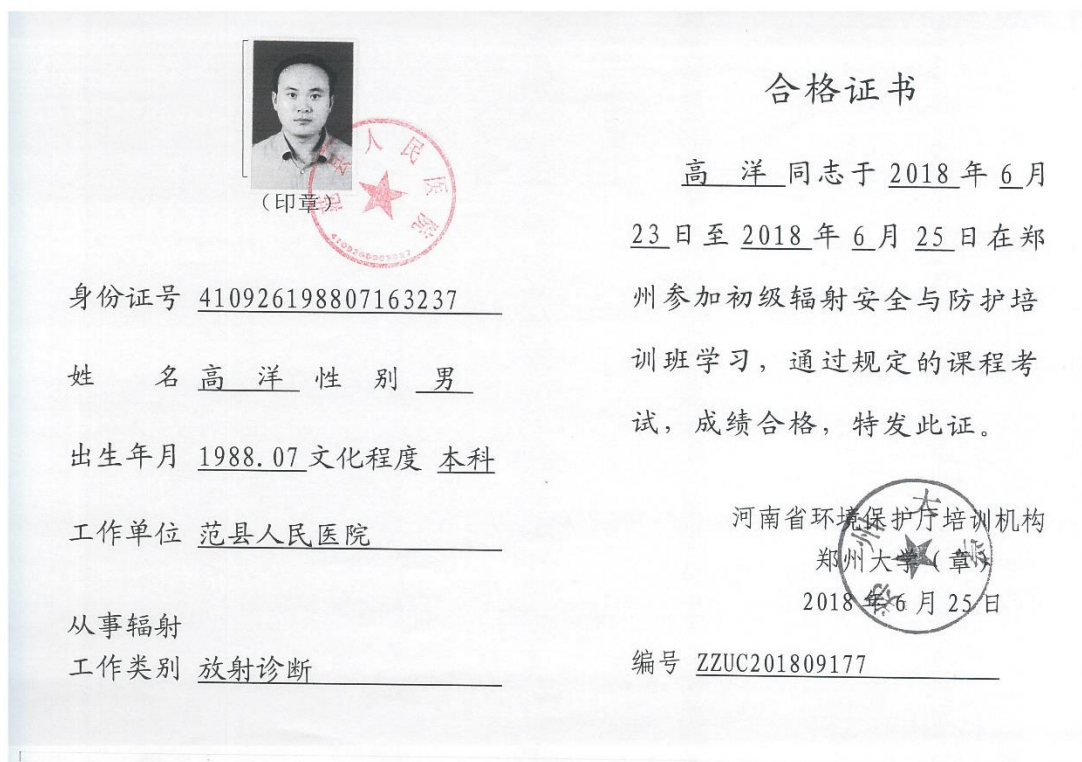 （印章）
人民医院
身份证号 410926198807163237
姓 名 高 洋 性 别 男
出生年月 1988.07 文化程度 本科
工作单位 范县人民医院
从事辐射
工作类别 放射诊断
合格证书
高 洋 同志于 2018 年 6 月
23 日至 2018 年 6 月 25 日在郑
州参加初级辐射安全与防护培
训班学习，通过规定的课程考
试，成绩合格，特发此证。
河南省环境保护厅培训机构
郑州大学（章）
2018 年 6 月 25 日
郑州大学
编号 ZZUC201809177